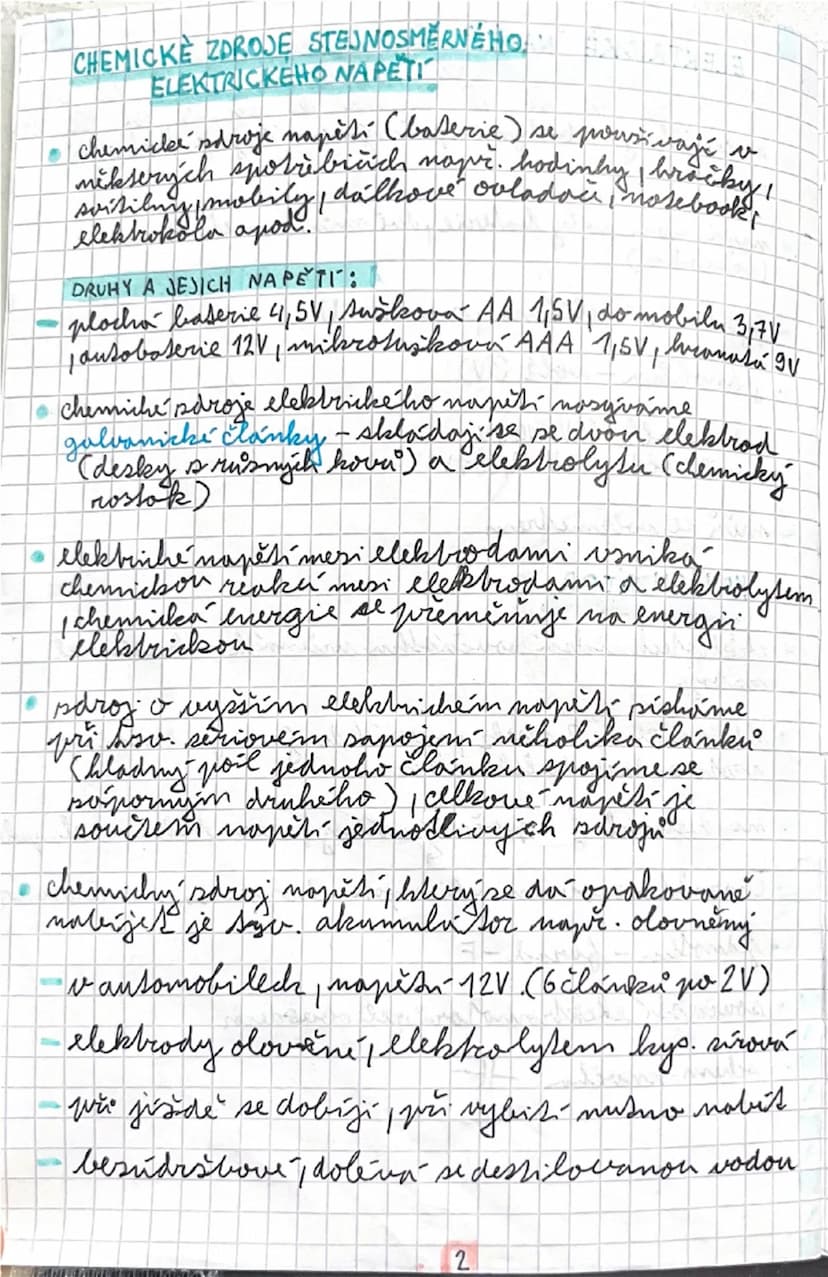 CHEMICKÉ ZDROJE STEJNOSMĚRNÉHO
ELEKTRICKÉHO NAPĚTÍ
• chemické zdroje napětí (baterie) se používají v
některých spotřebičích např. hodinky, hračky,
svítilny, mobily, dálkové ovladači, notebook,
elektrokola apod.
DRUHY A JEJICH NAPĚTÍ:
- plochá baterie 4,5V, tužková AA 1,5V, do mobilu 3,7V
, autobaterie 12V, mikrotužková AAA 1,5V, hranatá 9V
• chemické zdroje elektrického napětí nazýváme
galvanické články - skládají se ze dvou elektrod
(desky z různých kovů) a elektrolytu (chemický
roztok)
• elektrické napětí mezi elektrodami vzniká
chemickou reakcí mezi elektrodami a elektrolytem
, chemická energie se přeměňuje na energii
elektrickou
• zdroj o vyšším elektrickém napětí získáme
při tzv. sériovém zapojení několika článků
(kladný pól jednoho článku spojíme se
záporným druhého), celkové napětí je
součtem napětí jednotlivých zdrojů
• chemický zdroj napětí, který se dá opakovaně
nabíjet je tzv. akumulátor např. olovněný
- v automobilech, napětí 12V (6 článků po 2V)
- elektrody olověné, elektrolytem kys. sírová
- při jízdě se dobíjí, při vybití nutno nabít
- bezúdržbové, dolévá se destilovanou vodou
2